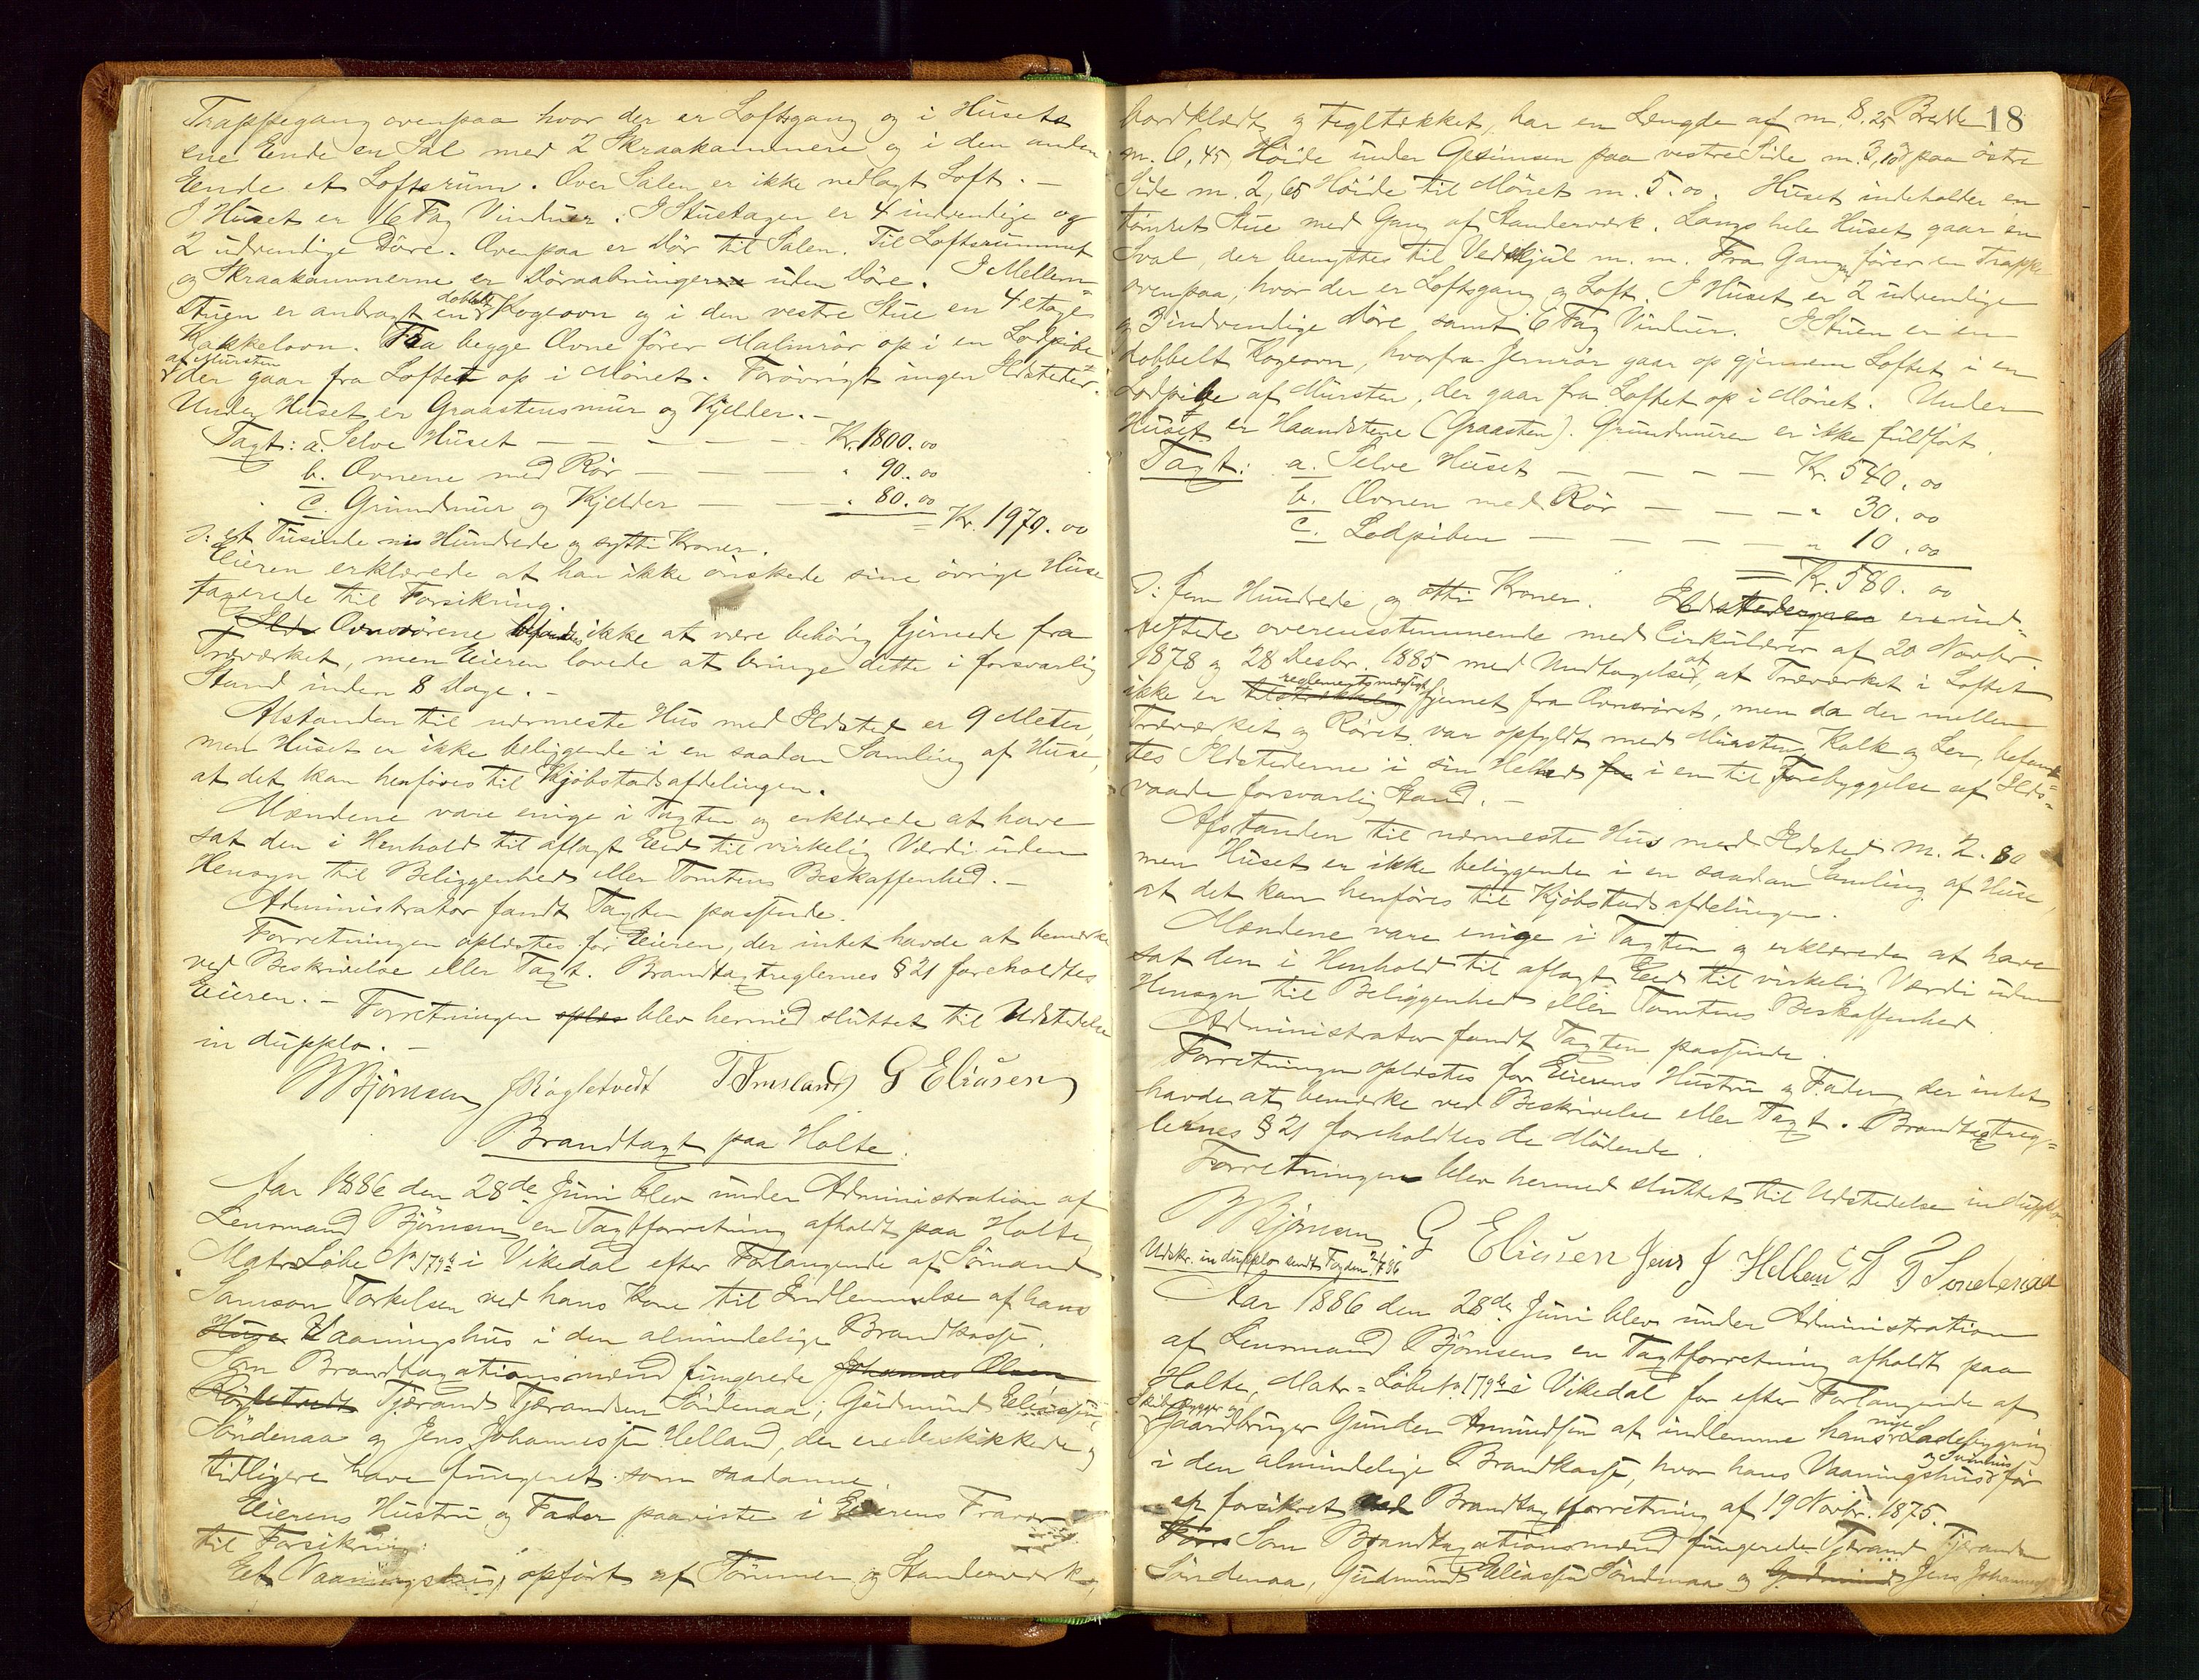 Trappegang ovenpaa hvor der er Loftsgang og i Husets
ene Eende en Sal med 2 Skraakammere og i den anden
Eende et Loftsrum. Over Salen er ikke nedlagt Loft. —
I Huset er 16 Fag Vinduer. I Stuetagen er 4 indvendige og
2 udvendige Döre. Ovenpaa er Dör til Salen. Til Loftsrummet
og Skraakammerne er Döraabninger uden Döre. I Mellem-
stuen er anbragt en dobbelt Kogeovn og i den vestre Stue en 4 Etages
Kakkelovn. Fra begge Ovne förer Malmrör op i en Lodpibe
af Mursten
der gaar fra Loftet op i Mönet. Forövrigt ingen Ildsteder.
Under Huset er Graastensmur og Kjelder. —
Taxt: a. Selve Huset — — — — — Kr. 1800.00
b. Ovnene med Rör — — — — " 90.00
c. Grundmur og Kjelder — — " 80.00
= Kr. 1970.00
ɔ: et Tusinde ni Hundrede og sytti Kroner.
Eieren erklærede at han ikke önskede sine övrige Huse
taxerede til Forsikring.
Ilds Ovnsrörene befandtes ikke at være behörig fjernede fra
Træværket, men Eieren lovede at bringe dette i forsvarlig
Stand inden 8 Dage. —
Afstanden til nærmeste Hus med Ildsted er 9 Meter,
men Huset er ikke beliggende i en saadan Samling af Huse,
at det kan henföres til Kjöbstadsafdelingen.
Mændene vare enige i Taxten og erklærede at have
sat den i Henhold til aflagt Eed til virkelig Værdi uden
Hensyn til Beliggenhed eller Tomtens Beskaffenhed. —
Administrator fandt Taxten passende.
Forretningen oplæstes for Eieren, der intet havde at bemærke
ved Beskrivelse eller Taxt. Brandtaxtreglernes § 21 foreholdtes
Eieren. — Forretningen oplæs blev hermed sluttet til Udstedelse
in dupplo. —
Björnsen J Rögletvedt T Imsland G Eliasen
Brandtaxt paa Holte.
Aar 1886 den 28de Juni blev under Administration af
Lensmand Björnsen en Taxtforretning afholdt paa Holte
Matr Löbe No 179b i Vikedal efter Forlangende af Sömand
Samson Torkelsen ved hans Kone til Indlemmelse af hans
Huse Vaaningshus i den almindelige Brandkasse.
Som Brandtaxationsmænd fungerede Johannes Olsen
Rögletvedt Tjærand Tjærandsen Söndenaa, Gudmund Eliassen
Söndenaa og Jens Johannessen Helland, der ere beskikkede og
tidligere have fungeret som saadanne.
Eierens Hustru og Fader paaviste i Eierens Fravær
til Forsikring:
Eet Vaaningshus, opfört af Tömmer og Standerværk
18
bordklædt og tegltækket, har en Længde af m. 8.25 Bredde
m. 6,45, Höide under Gesimsen paa vestre Side m. 3,10 paa östre
Side m. 2,65 Höide til Mönet m. 5.00. Huset indeholder en
tömret Stue med Gang af Standerværk. Langs hele Huset gaar en
Sval, der benyttes til Vedskjul m. m. Fra Gangen förer en Trappe
ovenpaa, hvor der er Loftsgang og Loft. I Huset er 2 udvendige
og 3 indvendige Döre, samt 6 Fag Vinduer. I Stuen er en
dobbelt Kogeovn, hvorfra Jernrör gaar op gjennem Loftet i en
Lodpibe af Mursten, der gaar fra Loftet op i Mönet. Under
Huset er Haandstene (Graasten). Grundmuren er ikke fuldfört.
Taxt: a. Selve Huset — — — — Kr. 540.00
b. Ovnen med Rör — — — " 30.00
c. Lodpiben — — — — " 10.00
Kr. 580.00
ɔ: fem Hundrede og otti Kroner. Ildstederne ere ind-
rettede overensstemmende med Cirkulærer af 20 Novbr.
1878 og 28 Desbr. 1885 med Undtagelse af, at Træværket i Loftet
ikke er tilstrækkelig reglementsmæssigt fjernet fra Ovnsröret, men da der mellem
Træværket og Röret var opfyldt med Mursten, Kalk og Ler, befand-
tes Ildstederne i sin Helhed for i en til Forebyggelse af Ilds-
vaade forsvarlig Stand. —
Afstanden til nærmeste Hus med Ildsted m. 2.80
men Huset er ikke beliggende i en saadan Samling af Huse,
at det kan henföres til Kjöbstadsafdelingen.
Mændene vare enige i Taxten og erklærede at have
sat den i Henhold til aflagt Eed til virkelig Værdi uden
Hensyn til Beliggenhed eller Tomtens Beskaffenhed.
Administrator fandt Taxten passende.
Forretningen oplæstes for Eierens Hustru og Fader, der intet
havde at bemærke ved Beskrivelse eller Taxt. Brandtaxtreg-
lernes § 21 foreholdtes de Mödende.
Forretningen blev hermed sluttet til Udstedelse in dupplo
Björnsen G Eliasen Jens J Helland T T Söndenaa
Udskr. in dupplo sendt Fogden 2/7 86
Aar 1886 den 28de Juni blev under Administration
af Lensmand Björnsens en Taxtforretning afholdt paa
Holte, Matr = Löbe No 179b i Vikedal for efter Forlangende af
Skibsbygger og
Gaardbruger Gunder Amundsen at indlemme hans nye Ladebygning
i den almindelige Brandkasse, hvor hans Vaaningshus og för
er forsikret ved Brandtaxtforretning af 19 Novbr. 1875.
Som Brandtaxationsmænd fungerede Tjærand Tjærandsen
Söndenaa, Gudmund Eliassen Söndenaa og Gudmund Jens Johannes